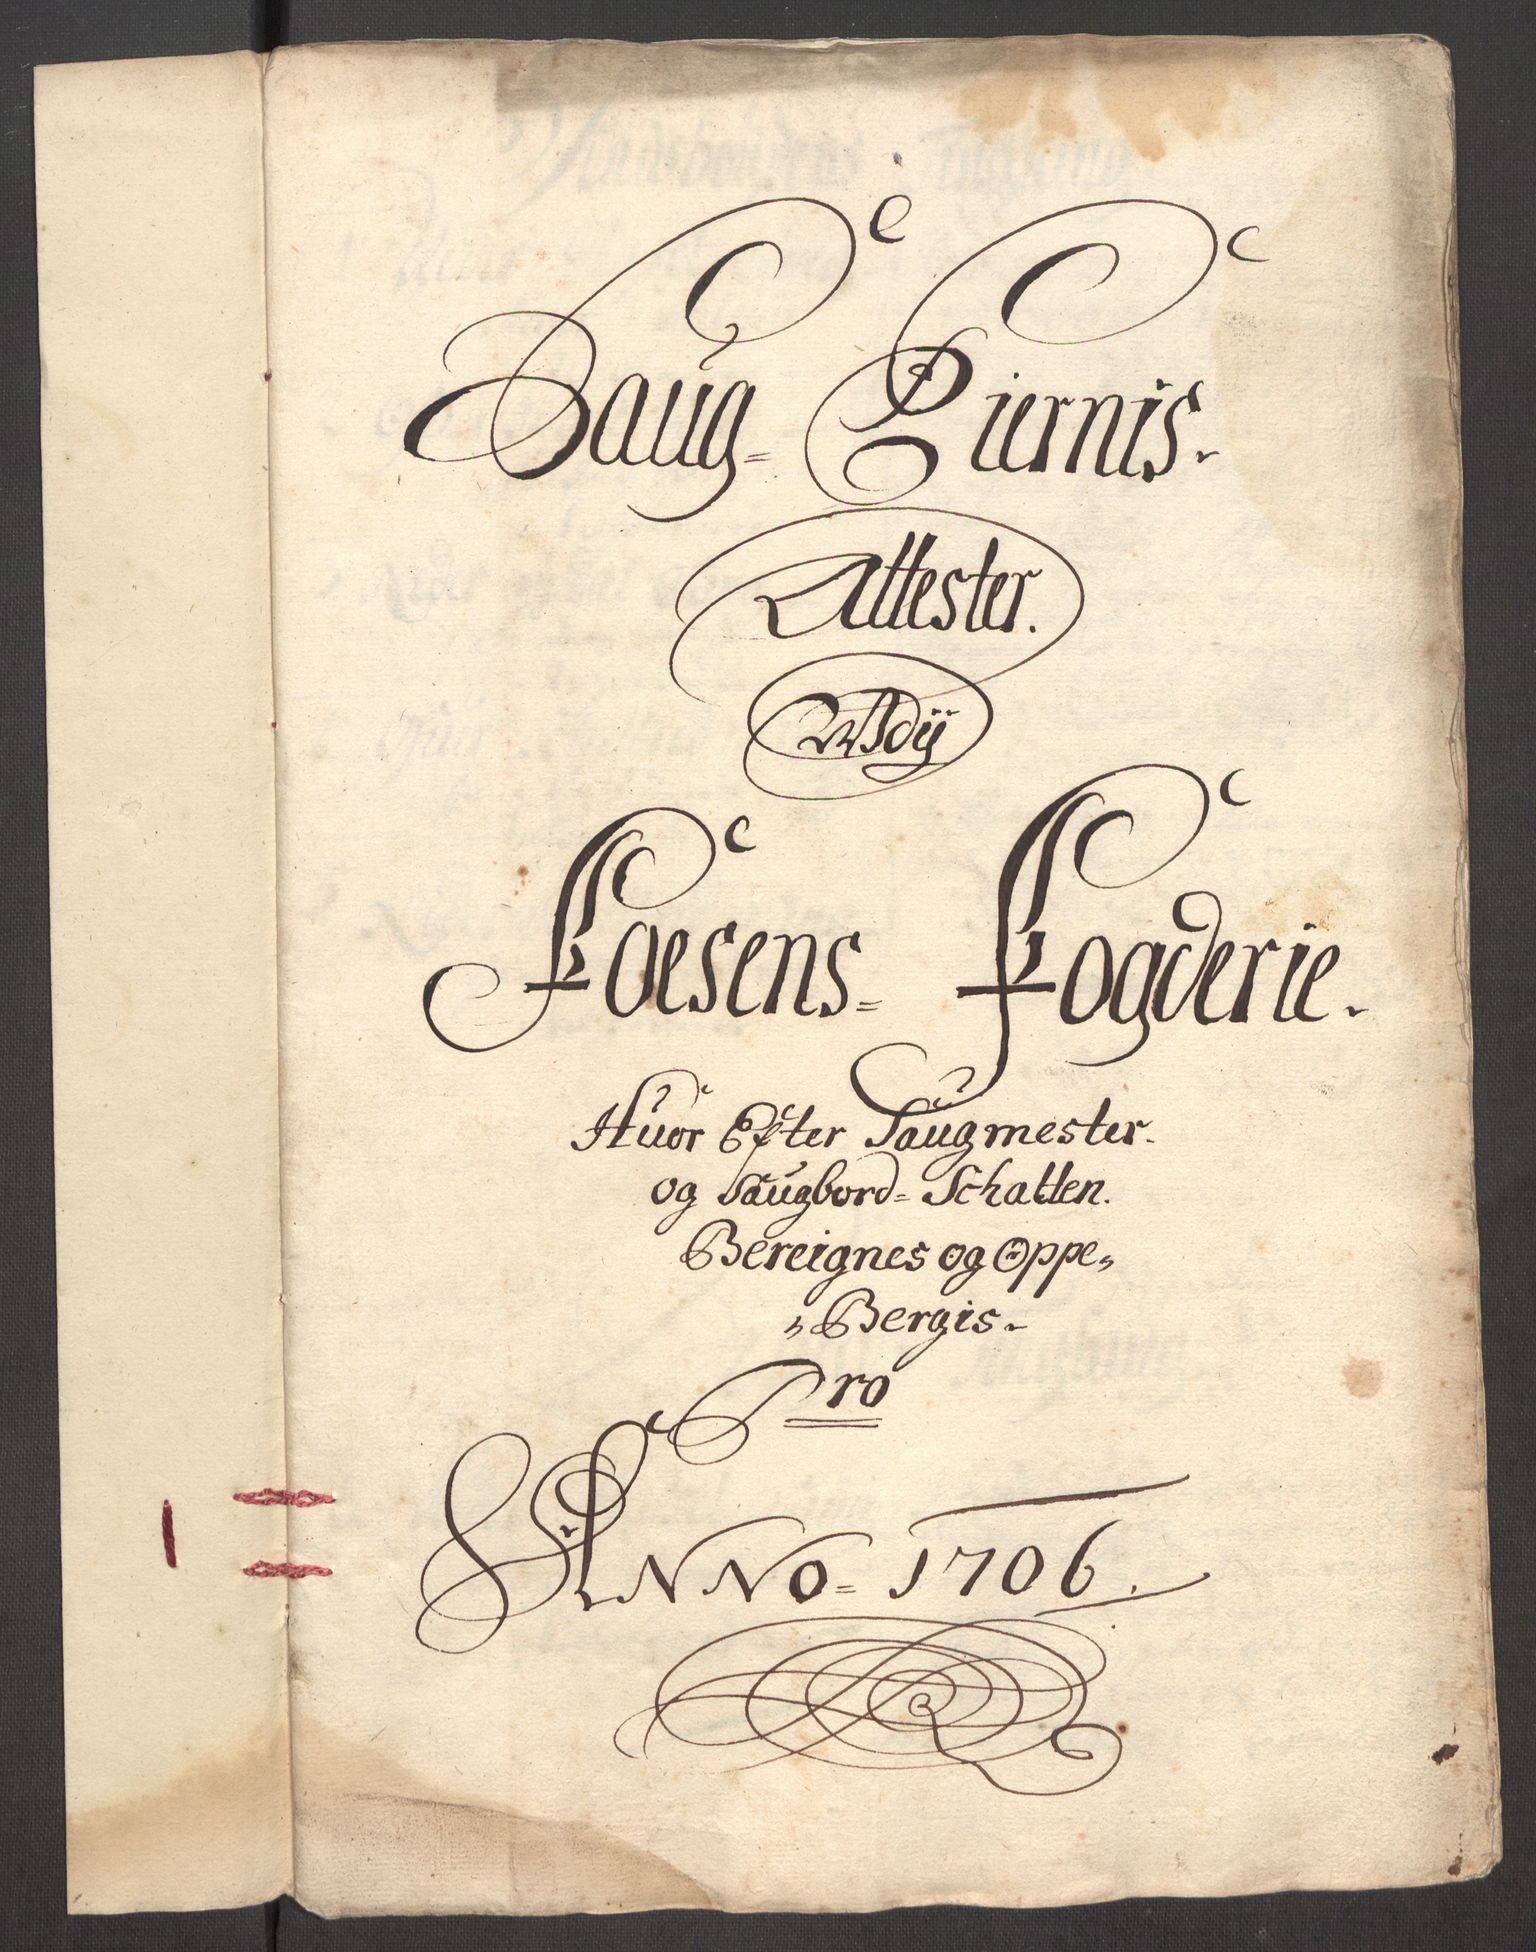 Saug= Eiernis.
Attester.
Udj
Foesens= Fogderie.
Huor Efter Saugmester.
og Saugbord= Schatten.
Bereignes og Oppe„
„Bergis.
Pro
ANNO= 1706.